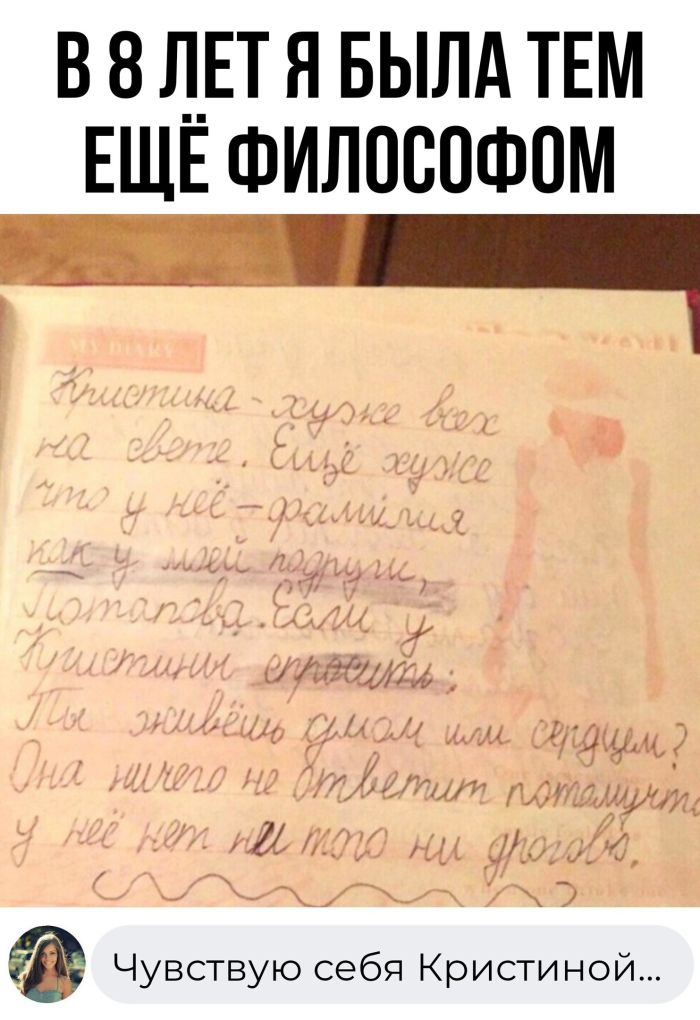 В 8 ЛЕТ Я БЫЛА ТЕМ
ЕЩЁ ФИЛОСОФОМ
MY DIARY
Кристина - хуже всех
на свете. Ещё хуже
что у неё - фамилия
как у моей подруги,
Потапова. Если у
Кристины спросить:
Ты живёшь умом или сердцем?
Она ничего не ответит потомучто
у неё нет ни того ни дрогово.
Чувствую себя Кристиной...